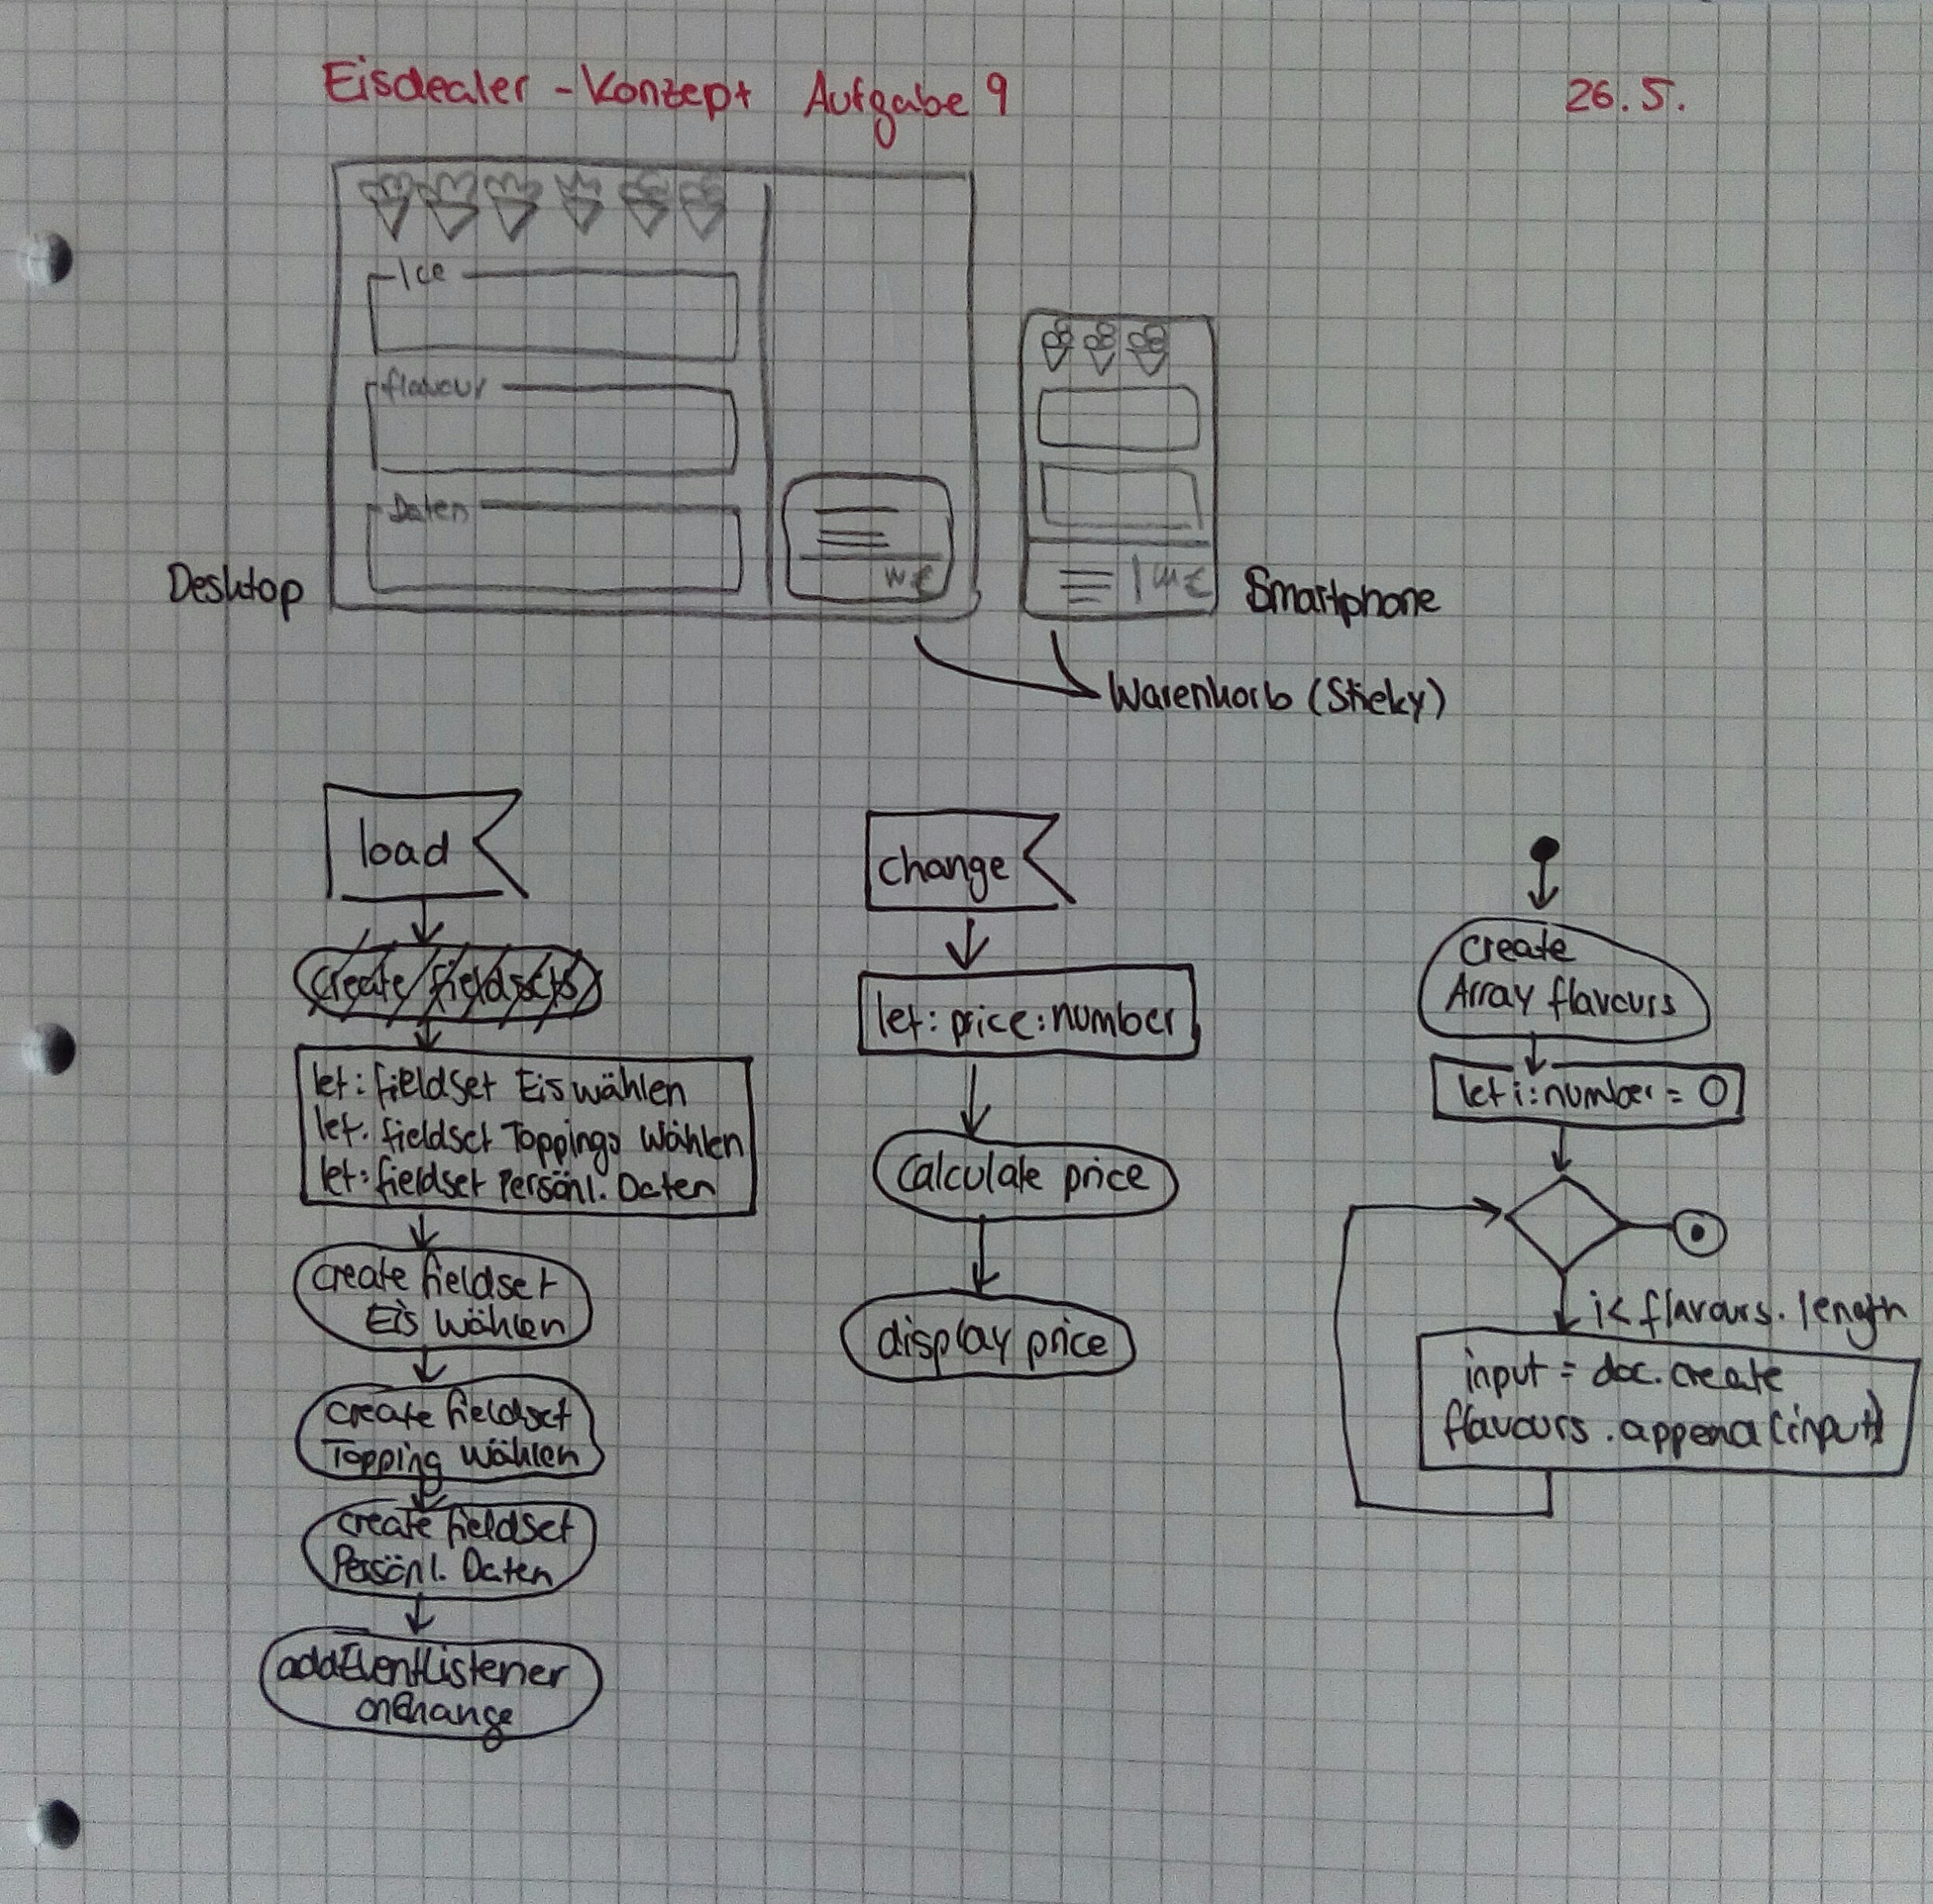 Eisdealer - Konzept Aufgabe 9
26. 5.
Ice
flavour
Daten
Desktop
Smartphone
Warenkorb (Sticky)
load
create fieldsets
let: fieldset Eis wählen
let: fieldset Toppings wählen
let: fieldset Persönl. Daten
create fieldset
Eis wählen
create fieldset
Topping wählen
create fieldset
Persönl. Daten
addEventListener
onChange
change
let: price: number
calculate price
display price
create
Array flavours
let i: number = 0
i < flavours. length
input = doc. create
flavours . append (input)